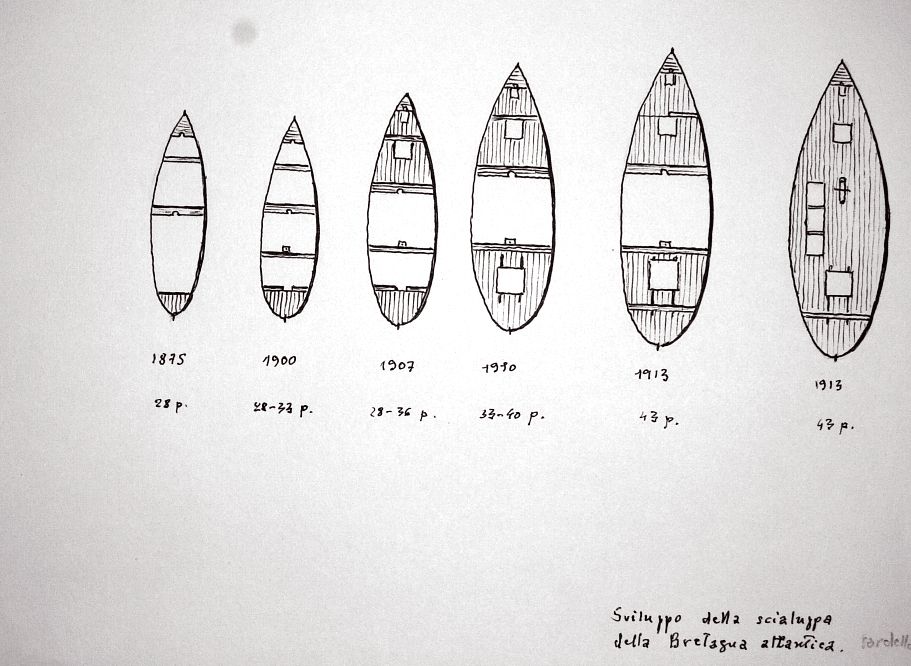 1875 1900 1907 1910 1913 1913
28 p. 28-33 p. 28-36 p. 33-40 p. 43 p. 43 p.
Sviluppo della scialuppa
della Bretagna atlantica.